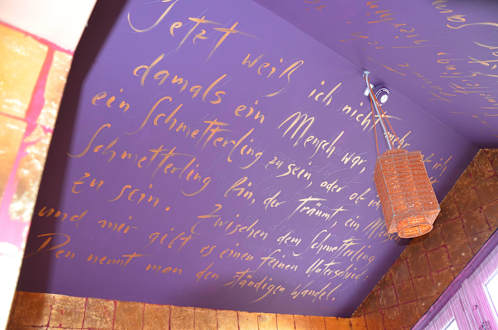 Jetzt weiß ich nicht,
damals ein Mensch war,
ein Schmetterling zu sein, oder ob ich
Schmetterling bin, der träumt ein
zu sein. Zwischen dem Schmetterling
und mir gibt es einen feinen Unterschied.
Den nennt man den ständigen Wandel.